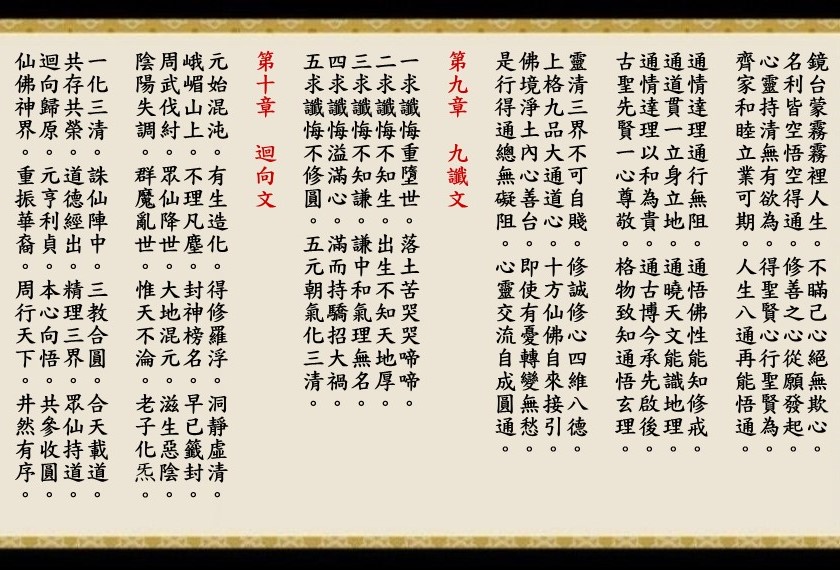 鏡台蒙霧霧裡人生。不瞞己心絕無欺心。
名利皆空悟空得通。修善之心從願發起。
心靈持清無有欲為。得聖賢心行聖賢為。
齊家和睦立業可期。人生八通再能悟通。
通情達理通行無阻。通悟佛性能知修戒。
通道貫一立身立地。通曉天文能識地理。
通情達理以和為貴。通古博今承先啟後。
古聖先賢一心尊敬。格物致知通悟玄理。
靈清三界不可自賤。修誠修心四維八德。
上格九品大通道心。十方仙佛自來接引。
佛境淨土內心善台。即使有憂轉變無愁。
是行得通總無礙阻。心靈交流自成圓通。
第九章 九讖文
一求讖悔重墮世。落土苦哭哭啼啼。
二求讖悔不知生。出生不知天地厚。
三求讖悔不知謙。謙中和氣理無名。
四求讖悔溢滿心。滿而持驕招大禍。
五求讖悔不修圓。五元朝氣化三清。
第十章 迴向文
元始混沌。有生造化。得修羅浮。洞靜虛清。
峨嵋山上。不理凡塵。封神榜名。早已籤封。
周武伐紂。眾仙降世。大地混元。滋生惡陰。
陰陽失調。群魔亂世。惟天不淪。老子化炁。
一化三清。誅仙陣中。三教合圓。合天載道。
共存共榮。道德經出。精理三界。眾仙持道。
迴向歸原。元亨利貞。本心向悟。共參收圓。
仙佛神界。重振華裔。周行天下。井然有序。